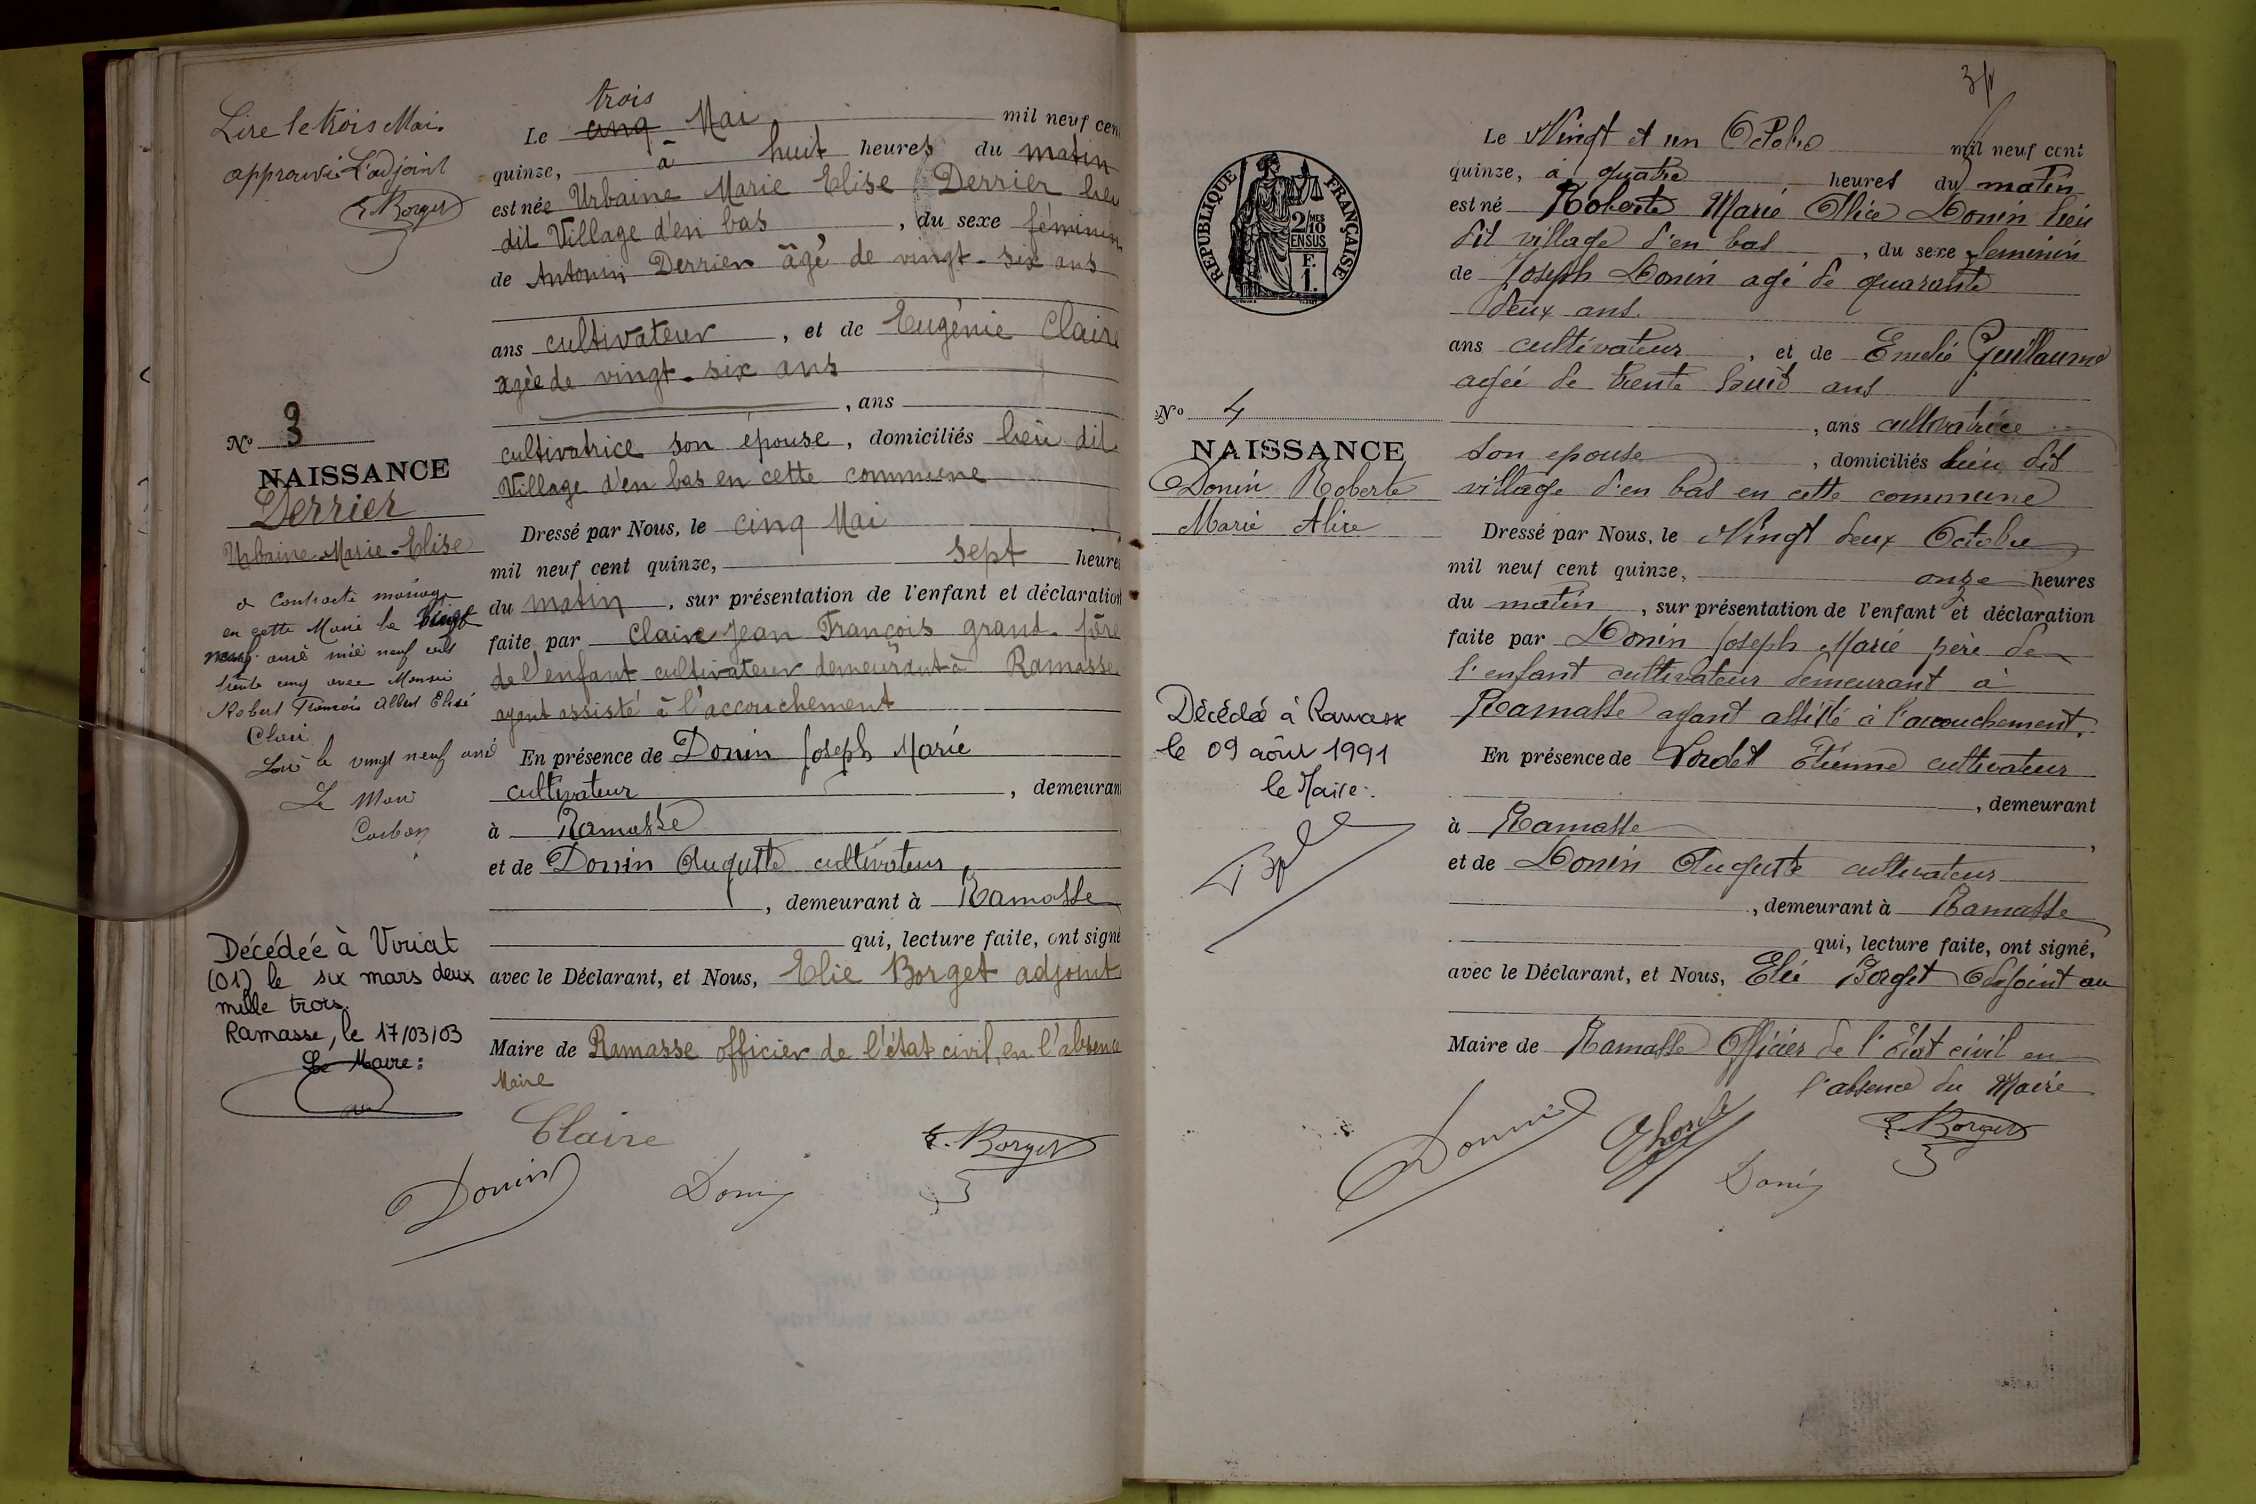 Lire le trois Mai.
approuvé L'adjoint
E. Borget
trois
Le cinq Mai mil neuf cent
quinze, à huit heures du matin
est née Urbaine Marie Elise Derrier lieu
dit Village d'en bas , du sexe féminin
de Antonin Derrier âgé de vingt-six ans
ans cultivateur , et de Eugénie Claire
agée de vingt-six ans
, ans
cultivatrice son épouse, domiciliés lieu dit
Village d'en bas en cette commune
Dressé par Nous, le cinq Mai
mil neuf cent quinze, sept heures
du matin , sur présentation de l'enfant et déclaration
faite par Claire Jean François grand-père
de l'enfant cultivateur demeurant à Ramasse
ayant assisté à l'accouchement
En présence de Donin Joseph Marie
cultivateur , demeurant
à Ramasse
et de Donin Auguste cultivateur
, demeurant à Ramasse
qui, lecture faite, ont signé
avec le Déclarant, et Nous, Elie Borget adjoint
Maire de Ramasse officier de l'état civil, en l'absence
Maire
Claire
E. Borget
Donin
Donin
No 3
NAISSANCE
Derrier
Urbaine-Marie-Elise
a contracté mariage
en cette Mairie le vingt
neuf avril mil neuf cent
trente cinq avec Monsieur
Robert François Albert Elisé
Clair
le vingt neuf avril
Le Maire
Décédée à Viriat
(01) le six mars deux
mille trois.
Ramasse, le 17/03/03
Le Maire:
RÉPUBLIQUE FRANÇAISE
2/10 MES
EN SUS
E.
1.
No 4
NAISSANCE
Donin Roberte
Marie Alice
Décédée à Ramasse
le 09 août 1991
le Maire:
Le Vingt et un Octobre mil neuf cent
quinze, à quatre heures du matin
est né Roberte Marie Alice Donin lieu
dit village d'en bas , du sexe feminin
de Joseph Donin agé de quarante
deux ans.
ans cultivateur , et de Emelie Guillaume
agée de trente huit ans
, ans cultivatrice
son epouse , domiciliés lieu dit
village d'en bas en cette commune
Dressé par Nous, le Vingt deux Octobre
mil neuf cent quinze, onze heures
du matin , sur présentation de l'enfant et déclaration
faite par Donin Joseph Marie père de
l'enfant cultivateur demeurant à
Ramasse ayant assisté à l'accouchement.
En présence de Etienne cultivateur
, demeurant
à Ramasse ,
et de Donin Auguste cultivateur
, demeurant à Ramasse
qui, lecture faite, ont signé,
avec le Déclarant, et Nous, Elie Borget Adjoint au
Maire de Ramasse Officier de l'état civil en
l'absence du Maire
Donin
E. Borget
Donin